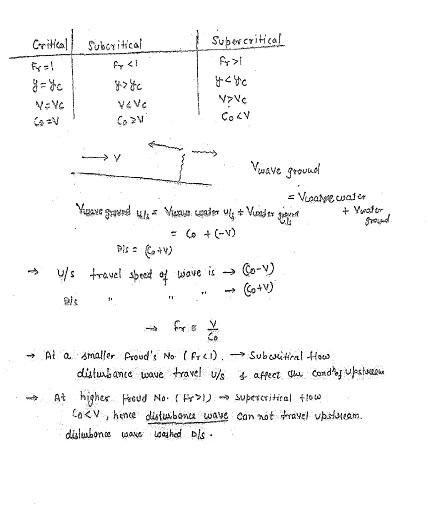 Critical | Subcritical | Supercritical
Fr=1 Fr<1 Fr>1
y=yc y>yc y<yc
V=Vc V<Vc V>Vc
Co=V Co>V Co<V
→ V
Vwave ground
= Vwave water
+ Vwater ground
Vwave ground u/s = Vwave water u/s + Vwater ground u/s
= Co + (-V)
D/s = (Co+V)
→ U/s travel speed of wave is → (Co-V)
D/s " " " → (Co+V)
→ Fr = V/Co
→ At a smaller Froud's No. (Fr<1). → Subcritical flow
disturbance wave travel U/s & affect the condn of upstream
→ At higher Froud No. (Fr>1) → supercritical flow
Co<V, hence disturbance wave can not travel upstream.
disturbance wave washed D/s.